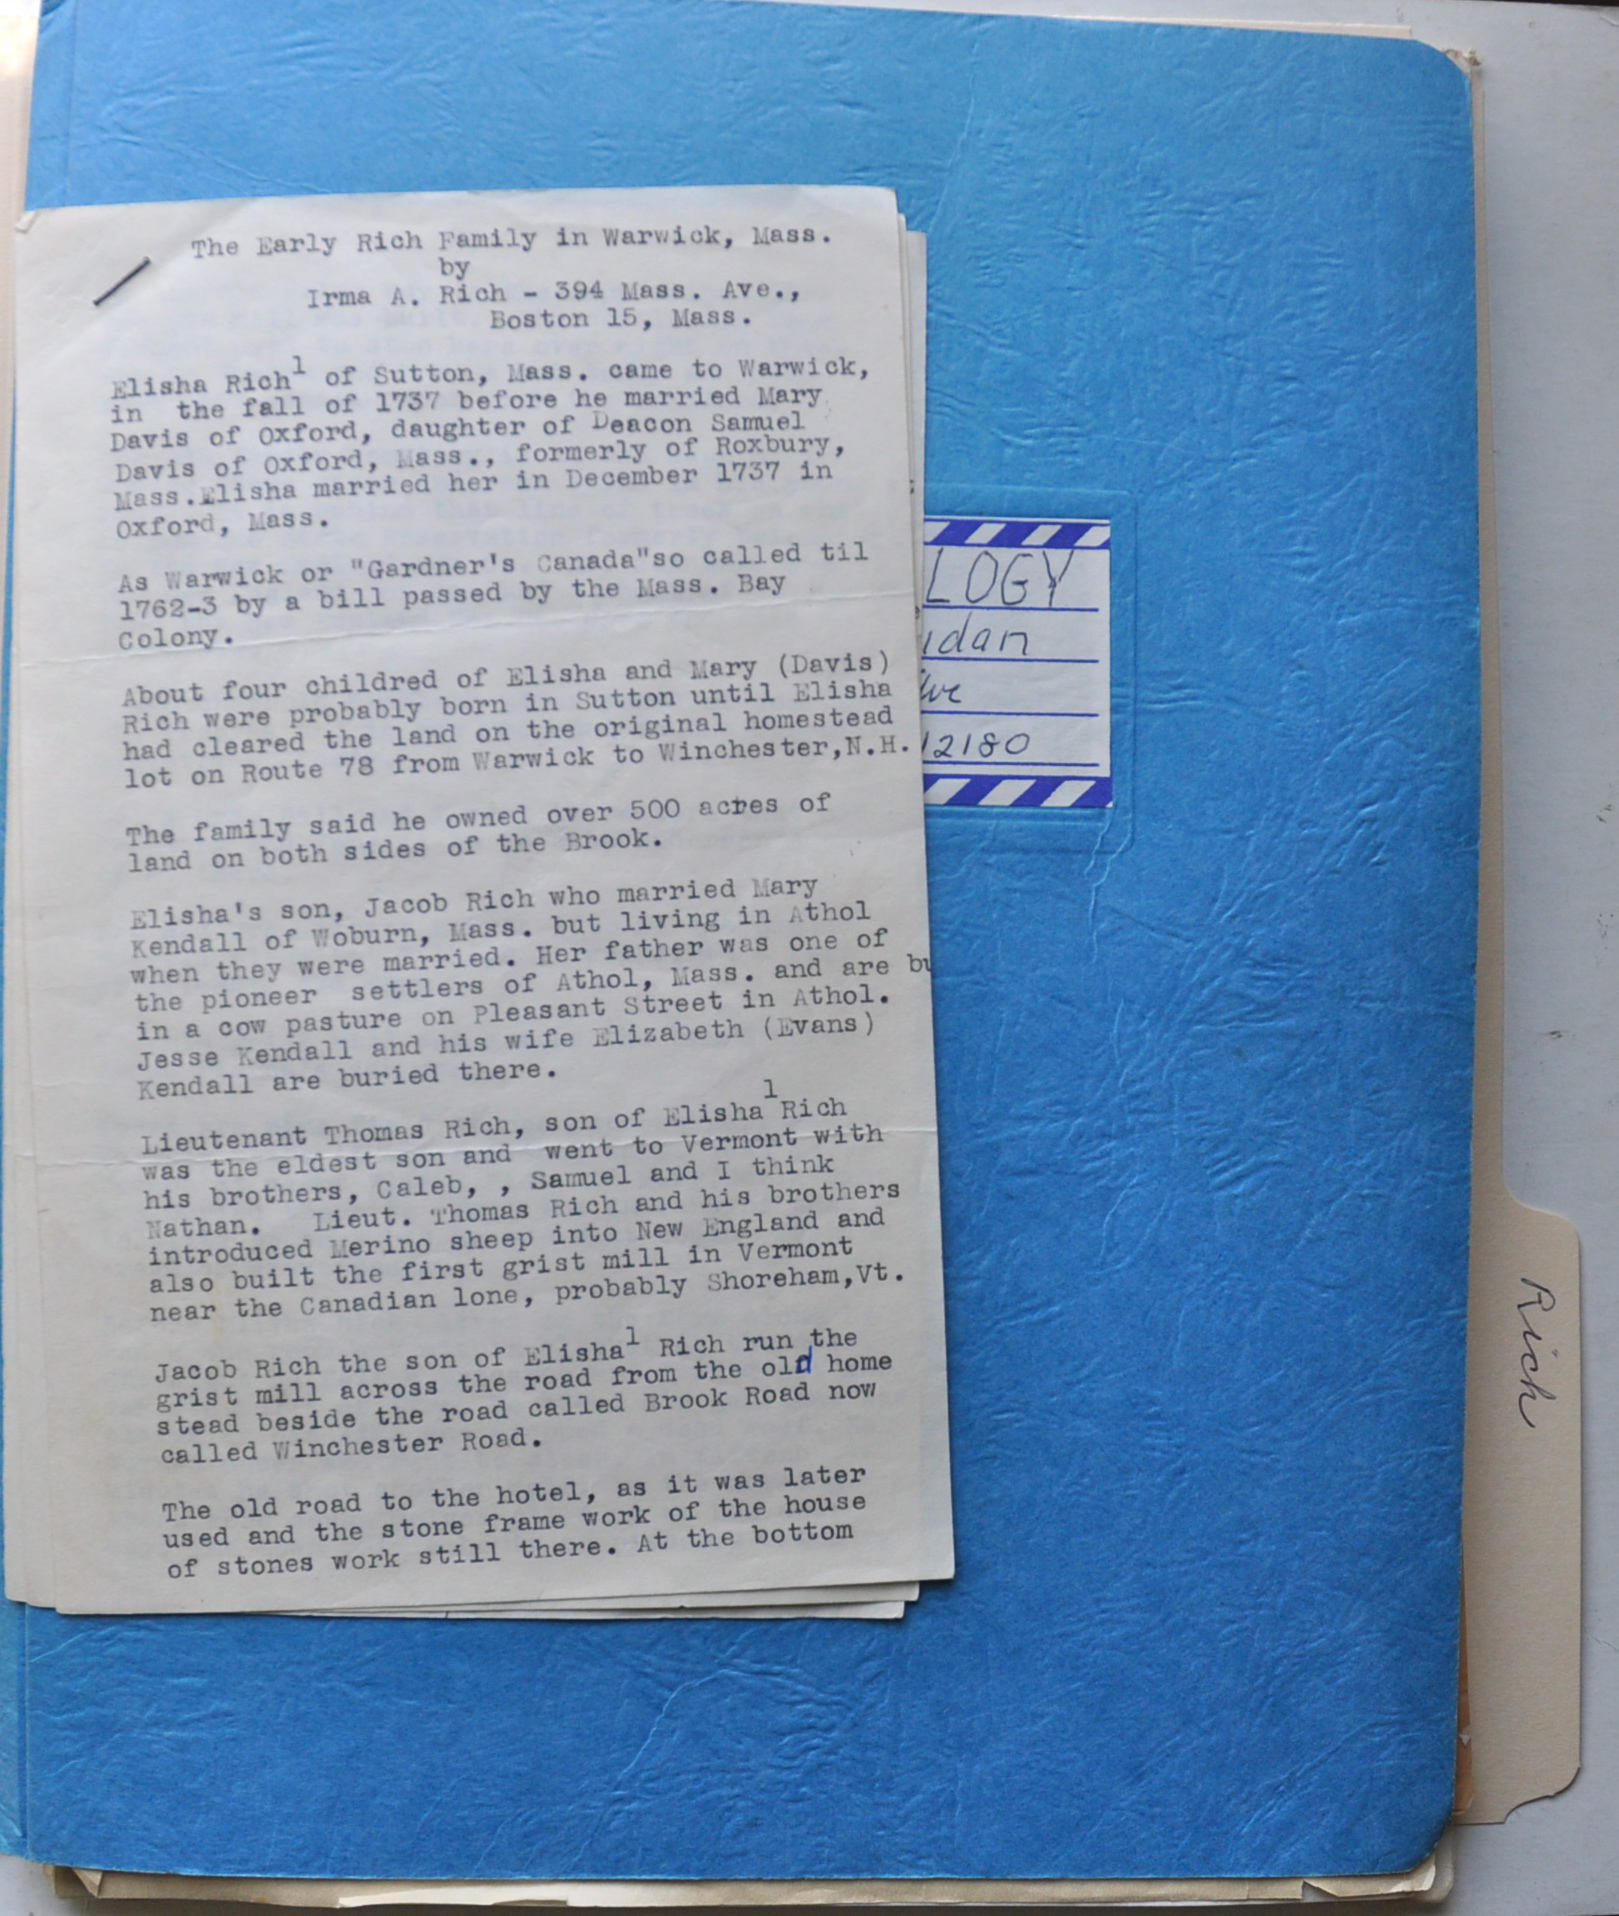 The Early Rich Family in Warwick, Mass.
by
Irma A. Rich - 394 Mass. Ave.,
Boston 15, Mass.
Elisha Rich1 of Sutton, Mass. came to Warwick,
in the fall of 1737 before he married Mary
Davis of Oxford, daughter of Deacon Samuel
Davis of Oxford, Mass., formerly of Roxbury,
Mass.Elisha married her in December 1737 in
Oxford, Mass.
As Warwick or "Gardner's Canada"so called til
1762-3 by a bill passed by the Mass. Bay
Colony.
About four childred of Elisha and Mary (Davis)
Rich were probably born in Sutton until Elisha
had cleared the land on the original homestead
lot on Route 78 from Warwick to Winchester,N.H.
The family said he owned over 500 acres of
land on both sides of the Brook.
Elisha's son, Jacob Rich who married Mary
Kendall of Woburn, Mass. but living in Athol
when they were married. Her father was one of
the pioneer settlers of Athol, Mass. and are bu
in a cow pasture on Pleasant Street in Athol.
Jesse Kendall and his wife Elizabeth (Evans)
Kendall are buried there.
Lieutenant Thomas Rich, son of Elisha1 Rich
was the eldest son and went to Vermont with
his brothers, Caleb, , Samuel and I think
Nathan. Lieut. Thomas Rich and his brothers
introduced Merino sheep into New England and
also built the first grist mill in Vermont
near the Canadian lone, probably Shoreham,Vt.
Jacob Rich the son of Elisha1 Rich run the
grist mill across the road from the old home
stead beside the road called Brook Road now
called Winchester Road.
The old road to the hotel, as it was later
used and the stone frame work of the house
of stones work still there. At the bottom
LOGY
idan
Ave
12180
Rich